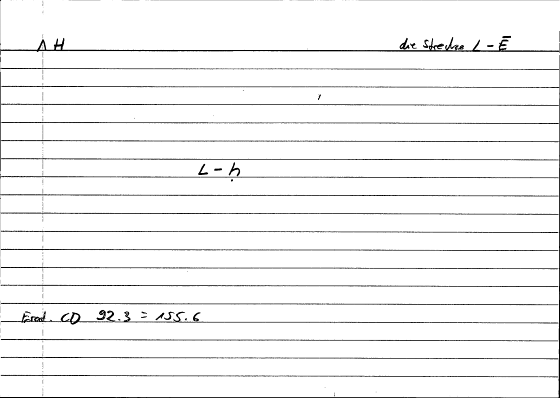 Λ H die Strecke L – Ē
L – ḥ
Erod. CD 92.3 = 155.6